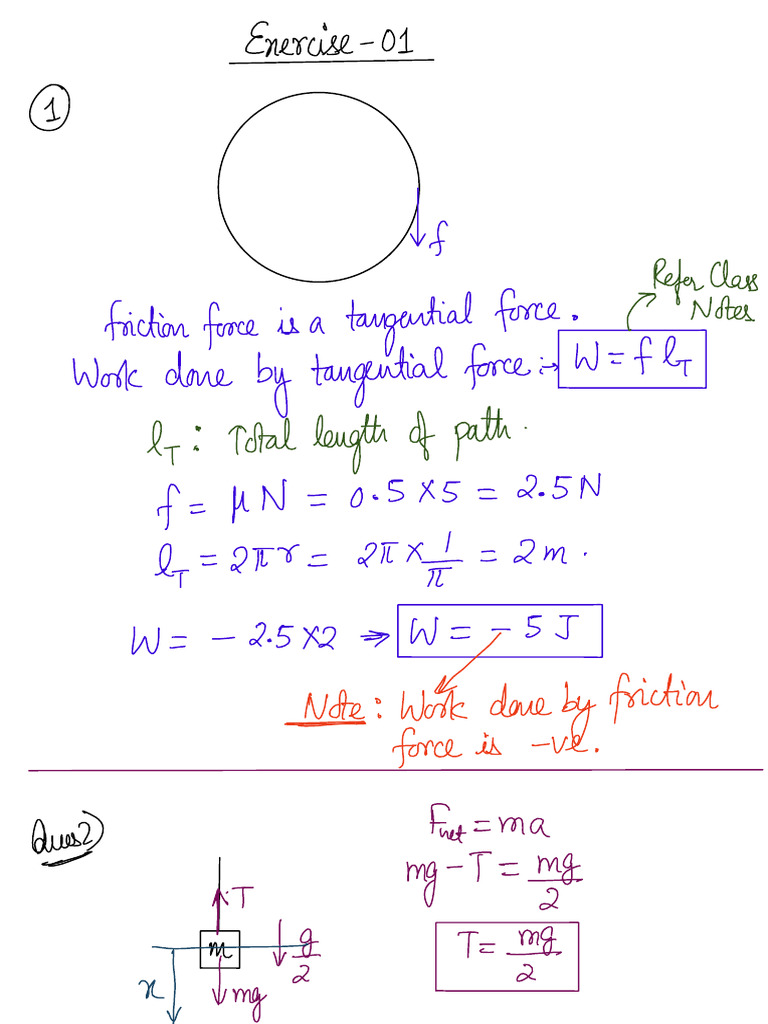 Exercise-01
1
f
Refer Class
Notes
friction force is a tangential force.
Work done by tangential force :→ W = f l_T
l_T : Total length of path.
f = μN = 0.5×5 = 2.5N
l_T = 2πr = 2π×1/π = 2m.
W = - 2.5×2 ⇒ W = - 5 J
Note: Work done by friction
force is -ve.
Ques 2)
F_net = ma
mg - T = mg/2
T = mg/2
T
m
g/2
x
mg